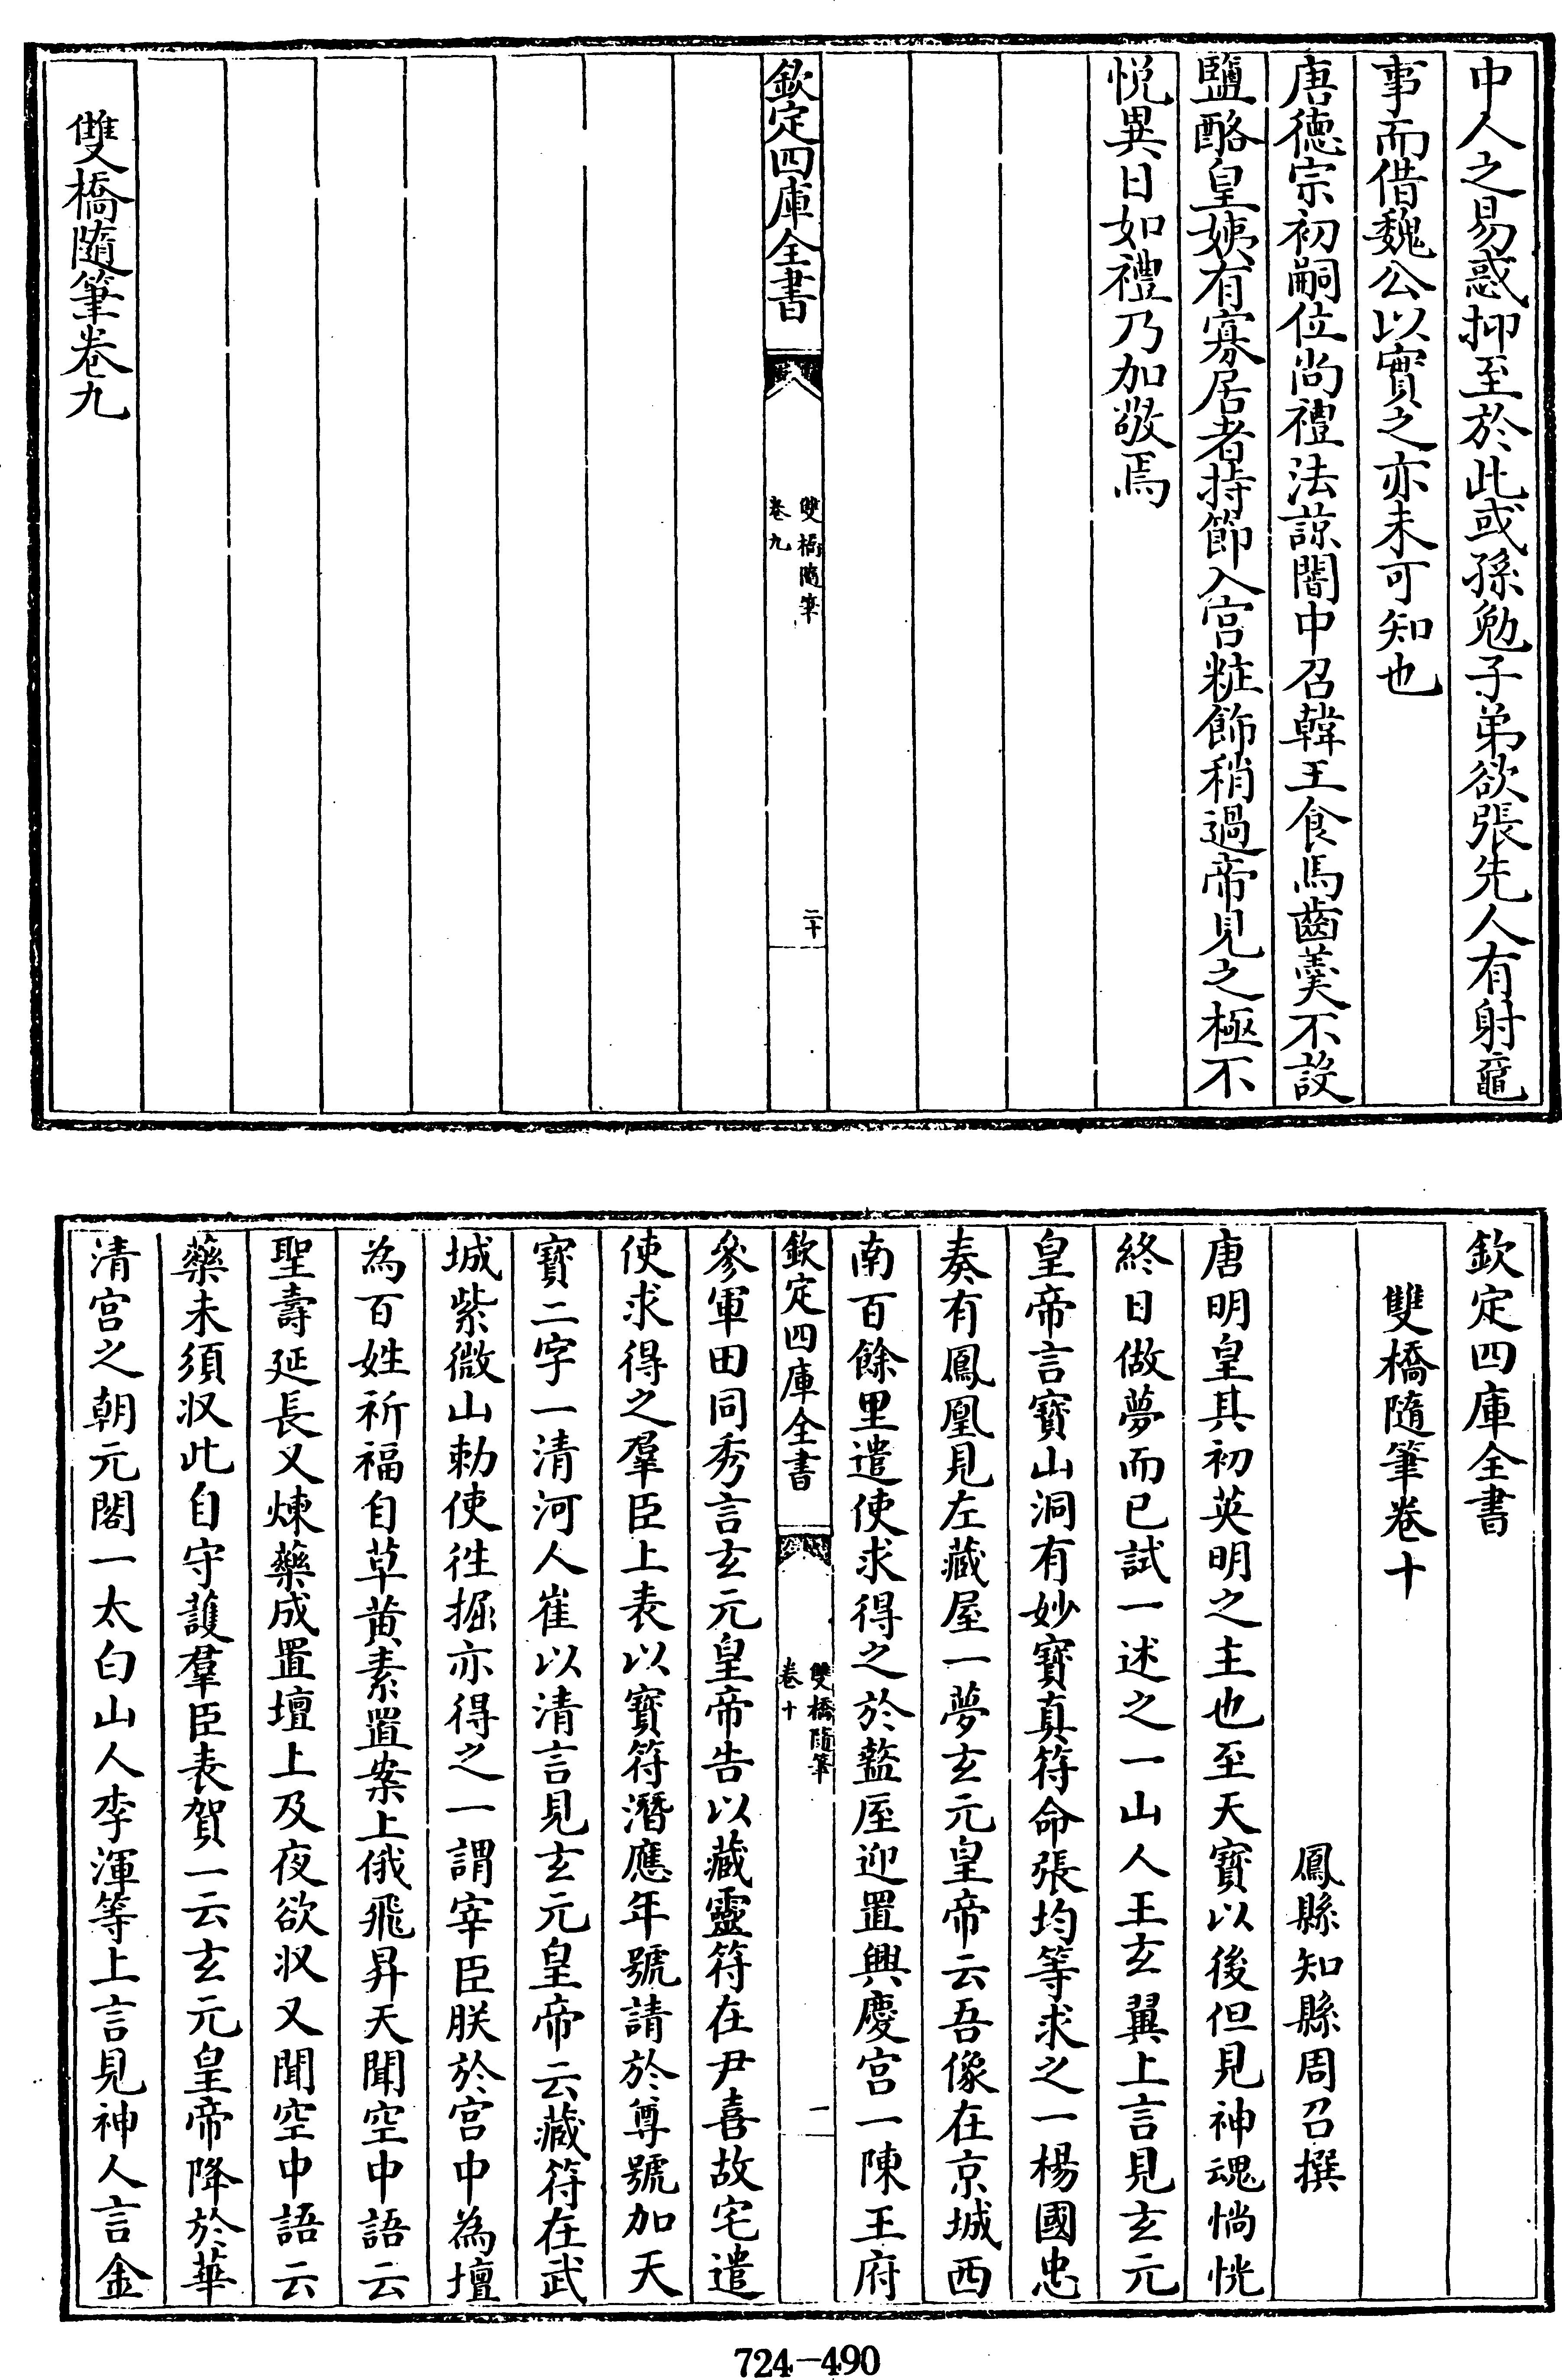 中人之易惑抑至於此或孫勉子弟欲張先人有射黿
事而借魏公以實之亦未可知也
唐德宗初嗣位尚禮法諒闇中召韓王食馬齒羹不設
鹽酪皇姨有寡居者持節入宫粧飾稍過帝見之極不
悦異日如禮乃加敬焉
欽定四庫全書
雙橋隨筆
卷九
二十
雙橋隨筆卷九
欽定四庫全書
雙橋隨筆卷十
鳳縣知縣周召撰
唐明皇其初英明之主也至天寳以後但見神魂惝恍
終日做夢而已試一述之一山人王玄翼上言見玄元
皇帝言寳山洞有妙寳真符命張均等求之一楊國忠
奏有鳳凰見左藏屋一夢玄元皇帝云吾像在京城西
南百餘里遣使求得之於盩厔迎置興慶宫一陳王府
欽定四庫全書
雙橋隨筆
卷十
一
參軍田同秀言玄元皇帝告以藏靈符在尹喜故宅遣
使求得之羣臣上表以寳符潛應年號請於尊號加天
寳二字一清河人崔以清言見玄元皇帝云藏符在武
城紫微山勅使徃掘亦得之一謂宰臣朕於宫中為壇
為百姓祈福自草黄素置案上俄飛昇天聞空中語云
聖壽延長又煉藥成置壇上及夜欲収又聞空中語云
藥未須収此自守護羣臣表賀一云玄元皇帝降於華
清宫之朝元閣一太白山人李渾等上言見神人言金
724-490